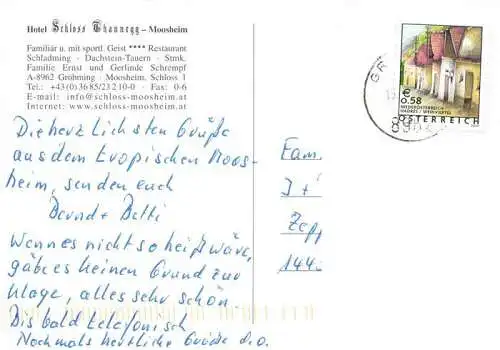 Hotel Schloss Thannegg – Moosheim
Familiär u. mit sportl. Geist **** Restaurant
Schladming - Dachstein-Tauern - Stmk.
Familie Ernst und Gerlinde Schrempf
A-8962 Gröbming · Moosheim, Schloss 1
Tel.: +43(0)36 85/23 2 10-0 Fax: 0-6
E-mail: info@schloss-moosheim.at
Internet: www.schloss-moosheim.at
€
0.58
NIEDERÖSTERREICH
ÖSTERREICH
Die herzlichsten Grüße
aus dem tropischen Moos-
heim, senden euch
Bernd + Betti
Wenn es nicht so heiß wäre,
gäbe es keinen Grund zur
Klage, alles sehr schön.
Bis bald telefonisch
Nochmals herzliche Grüße d.o.
Fam.
J +
Zepp
144